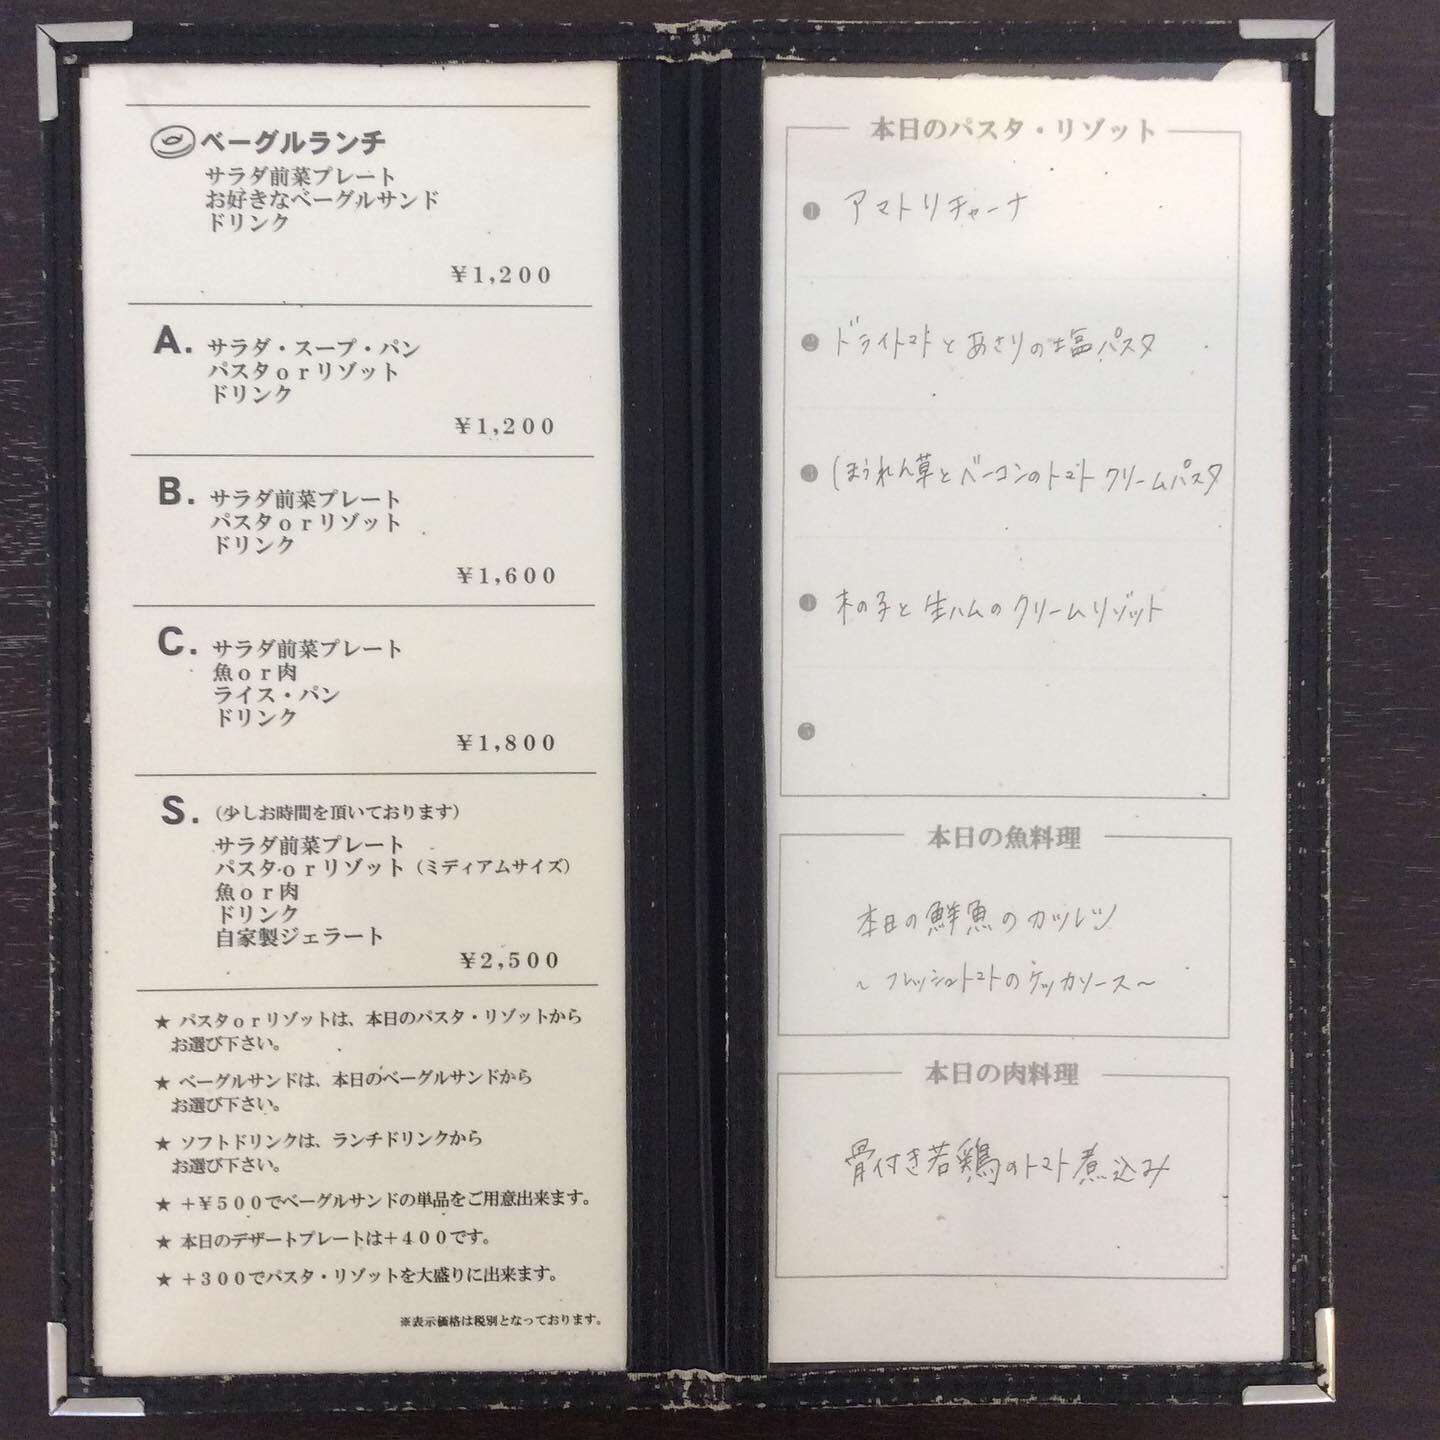 ベーグルランチ
サラダ前菜プレート
お好きなベーグルサンド
ドリンク
¥1,200
A. サラダ・スープ・パン
パスタorリゾット
ドリンク
¥1,200
B. サラダ前菜プレート
パスタorリゾット
ドリンク
¥1,600
C. サラダ前菜プレート
魚or肉
ライス・パン
ドリンク
¥1,800
S. (少しお時間を頂いております)
サラダ前菜プレート
パスタorリゾット(ミディアムサイズ)
魚or肉
ドリンク
自家製ジェラート
¥2,500
★ パスタorリゾットは、本日のパスタ・リゾットから
お選び下さい。
★ ベーグルサンドは、本日のベーグルサンドから
お選び下さい。
★ ソフトドリンクは、ランチドリンクから
お選び下さい。
★ +¥500でベーグルサンドの単品をご用意出来ます。
★ 本日のデザートプレートは+400です。
★ +300でパスタ・リゾットを大盛りに出来ます。
※表示価格は税別となっております。
本日のパスタ・リゾット
1 アマトリチャーナ
2 ドライトマトとあさりの塩パスタ
3 ほうれん草とベーコンのトマトクリームパスタ
4 木の子と生ハムのクリームリゾット
5
本日の魚料理
本日の鮮魚のカツレツ
~フレッシュトマトのケッカソース~
本日の肉料理
骨付き若鶏のトマト煮込み